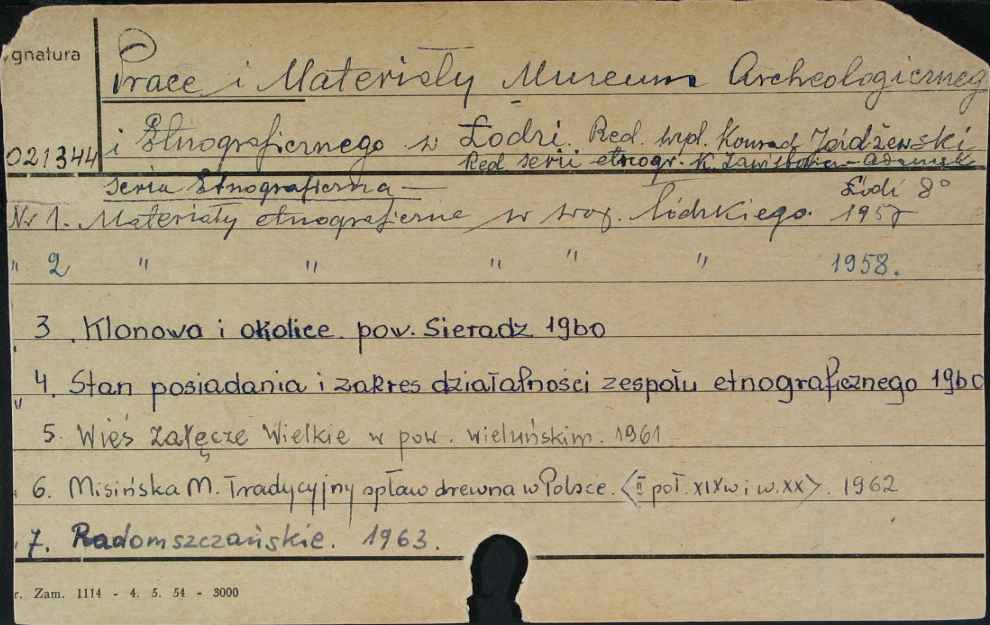 ygnatura
Prace i Materiały Muzeum Archeologiczneg
021344 i Etnograficznego w Łodzi. Red. wspł. Konrad Jażdżewski
Red. serii etnogr. K. Zawistowicz-Adamska
Seria Etnograficzna — Łódź 8°
Nr 1. Materiały etnograficzne w woj. łódzkiego. 1957
" 2 " " " " " 1958.
3. Klonowa i okolice. pow. Sieradz 1960
4. Stan posiadania i zakres działalności zespołu etnograficznego 1960
5. Wieś Załęcze Wielkie w pow. wieluńskim. 1961
6. Misińska M. Tradycyjny spław drewna w Polsce. <II poł. XIX w i w. XX>. 1962
7. Radomszczańskie. 1963.
r. Zam. 1114 - 4. 5. 54 - 3000